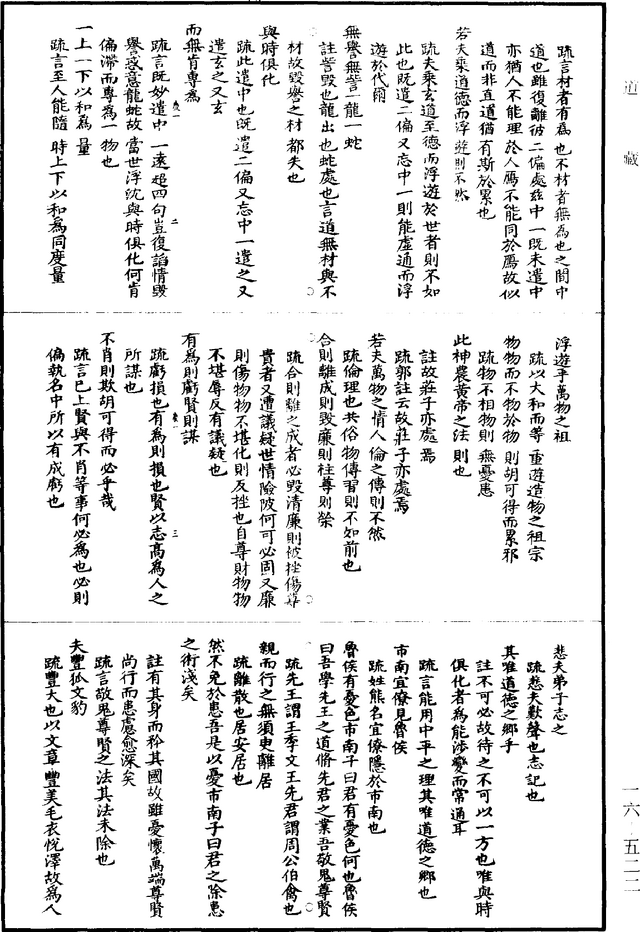 道藏
疏言材者有為也不材者無為也之間中
道也雖復離彼二偏處茲中一既未遣中
亦猶人不能理於人鴈不能同於鴈故似
道而非真道猶有斯於累也
若夫乘道德而浮遊則不然
疏夫乘玄道至德而浮遊於世者則不如
此也既遣二偏又忘中一則能虛通而浮
遊於代爾
無譽無訾一龍一蛇
註訾毀也龍出也蛇處也言道無材與不
材故毀譽之材都失也
與時俱化
疏此遣中也既遣二偏又忘中一遣之又
遣玄之又玄
而無肯專為
疏言既妙遣中一遠超四句豈復諂情毀
譽惑意龍蛇故當世浮沈與時俱化何肯
偏滯而專為一物也
一上一下以和為量
疏言至人能隨時上下以和為同度量
浮遊乎萬物之祖
疏以大和而等量遊造物之祖宗
物物而不物於物則胡可得而累邪
疏物不相物則無憂患
此神農黃帝之法則也
註故莊子亦處焉
疏郭註云故莊子亦處焉
若夫萬物之情人倫之傳則不然
疏倫理也共俗物傳習則不如前也
合則離成則毀廉則挫尊則榮
疏合則離之成者必毀清廉則被挫傷尊
貴者又遭議疑世情險陂何可必固又廉
則傷物物不堪化則反挫也自尊財物物
不堪辱反有議疑也
有為則虧賢則謀
疏虧損也有為則損也賢以志高為人之
所謀也
不肖則欺胡可得而必乎哉
疏言已上賢與不肖等事何必為也必則
偏執名中所以有成虧也
悲夫弟子志之
疏悲夫歎聲也志記也
其唯道德之鄉乎
註不可必故待之不可以一方也唯與時
俱化者為能涉變而常通耳
疏言能用中平之理其唯道德之鄉也
市南宜僚見魯侯
疏姓熊名宜僚隱於市南也
魯侯有憂色市南子曰君有憂色何也魯侯
曰吾學先王之道脩先君之業吾敬鬼尊賢
疏先王謂王季文王先君謂周公伯禽也
親而行之無須臾離居
疏離散也居安居也
然不免於患吾是以憂市南子曰君之除患
之術淺矣
註有其身而矜其國故雖憂懷萬端尊賢
尚行而患慮愈深矣
疏言敬鬼尊賢之法其法未除也
夫豐狐文豹
疏豐大也以文章豐美毛衣悅澤故為人
一六·五二二